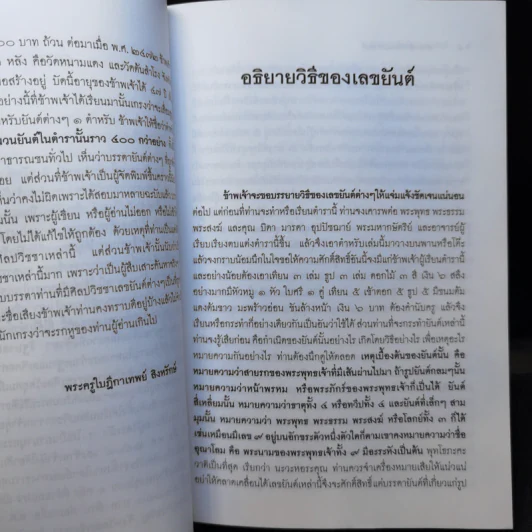 ๐๐ บาท ถ้วน ต่อมาเมื่อ พ.ศ. ๒๔๗๒
หลัง คือวัดหนามแดง และวัดต้นสำโรง
อสร้างอยู่ บัดนี้อายุของข้าพเจ้าได้ ๔๗ ปี
อย่างนี้ที่ข้าพเจ้าได้เรียนมานั้นเกรงว่าจะเสื่อม
าหรับยันต์ต่างๆ ๑ ตำหรับ ข้าพเจ้าให้ชื่อว่า
วนยันต์ในตำรานั้นราว ๔๐๐ กว่าอย่าง
าธารณชนทั่วไป เห็นว่าบรรดายันต์ต่างๆ
อย แต่ส่วนที่ข้าพเจ้าเป็นผู้จัดพิมพ์ขึ้น
ห็นว่าคงไม่ผิดเพราะได้สอบมาหลายฉบับแล้ว
นั้น เพราะผู้เขียน หรือผู้อ่านไม่ออก หรือไม่
โดยไม่ได้แก้ไขให้ถูกต้อง ด้วยเหตุที่ท่านเป็น
ศิลปวิชชาเหล่านี้ แต่ส่วนข้าพเจ้านั้นนับว่า
าเหล่านี้มาก เพราะว่าเป็นผู้สืบเสาะค้นหา
บบรรดาท่านที่มีศิลปวิชชาเลขยันต์เหล่านี้
ะชื่อเสียงข้าพเจ้าท่านคงทราบดีอยู่บ้างแล้ว
นักเกรงว่าจะรกหูของท่านผู้อ่านเกินไป
พระครูใบฎีกาเทพย์ สิงหรักษ์
อธิบายวิธีของเลขยันต์
ข้าพเจ้าจะขอบรรยายวิธีของเลขยันต์ต่างๆให้แจ่มแจ้งชัดเจนแน่นอน
ต่อไป แต่ก่อนที่ท่านจะทำหรือเรียนตำรานี้ ท่านจงเคารพต่อ พระพุทธ พระธรรม
พระสงฆ์ และคุณ บิดา มารดา อุปัชฌาย์ พระมหากษัตริย์ และอาจารย์ผู้
ผู้เรียบเรียงตบแต่งตำรานี้ขึ้น แล้วจึงเอาตำหรับเล่มนี้มาวางบนพานหรือโต๊ะ
แล้วจงกราบน้อมนึกในใจขอให้ความศักดิ์สิทธิ์อันนี้จงมีแก่ข้าพเจ้าผู้ได้เรียน
และอย่างน้อยต้องเอาเทียน ๓ เล่ม ธูป ๓ เล่ม ดอกไม้ ๓ สี เงิน ๖ สลึง
อย่างมากมีหัวหมู ๑ หัว ใบศรี ๑ คู่ เทียน ๕ เข้าตอก ๕ ธูป ๕ มีขนมต้ม
แดงต้มขาว มะพร้าวอ่อน ขันล้างหน้า เงิน ๖ บาท ต้องคำนับครู แล้วจึง
เรียนหรือกระทำก็อย่างเดียวกันเป็นอันว่าใช้ได้ ส่วนท่านที่จะกระทำยันต์เหล่านี้
ท่านจงรู้เสียก่อน คือกำเนิดของยันต์นี้อย่างไร เกิดโดยวิธีอย่างไร เพื่อเหตุอะไร
หมายความกันอย่างไร ท่านต้องนึกดูให้ตลอด เหตุเบื้องต้นของยันต์นั้น คือ
หมายความว่าสายรกของพระพุทธเจ้าที่มีเส้นผ่านไปมา ถ้ารูปยันต์กลมๆนั้น
หมายความว่าหน้าพรหม หรือพระภักร์ของพระพุทธเจ้าก็เป็นได้ ยันต์
สี่เหลี่ยมนั้น หมายความว่าธาตุทั้ง ๔ หรือทวีปทั้ง ๔ และยันต์ที่เล็กๆ สาม
มุมนั้น หมายความว่า พระพุทธ พระธรรม พระสงฆ์ หรือโลกย์ทั้ง ๓ ก็ได้
เช่นเหมือนมีเลข ๙ อยู่บนอักขระตัวหนึ่งตัวใดก็ตามเขาคงหมายความว่าชื่อ
อุณาโลม คือ พระนามของพระพุทธเจ้าทั้ง ๙ มีอะระหังเป็นต้น พุทโธภะคะ
วาติเป็นที่สุด เรียกว่า นะวะหอระคุณ ท่านควรจำเครื่องหมายเสียให้แน่วแน่
อย่าให้คลาดเคลื่อนได้เลขยันต์เหล่านี้จึงจะศักดิ์สิทธิ์ แต่บรรดายันต์ที่เกี่ยวแก่รูป